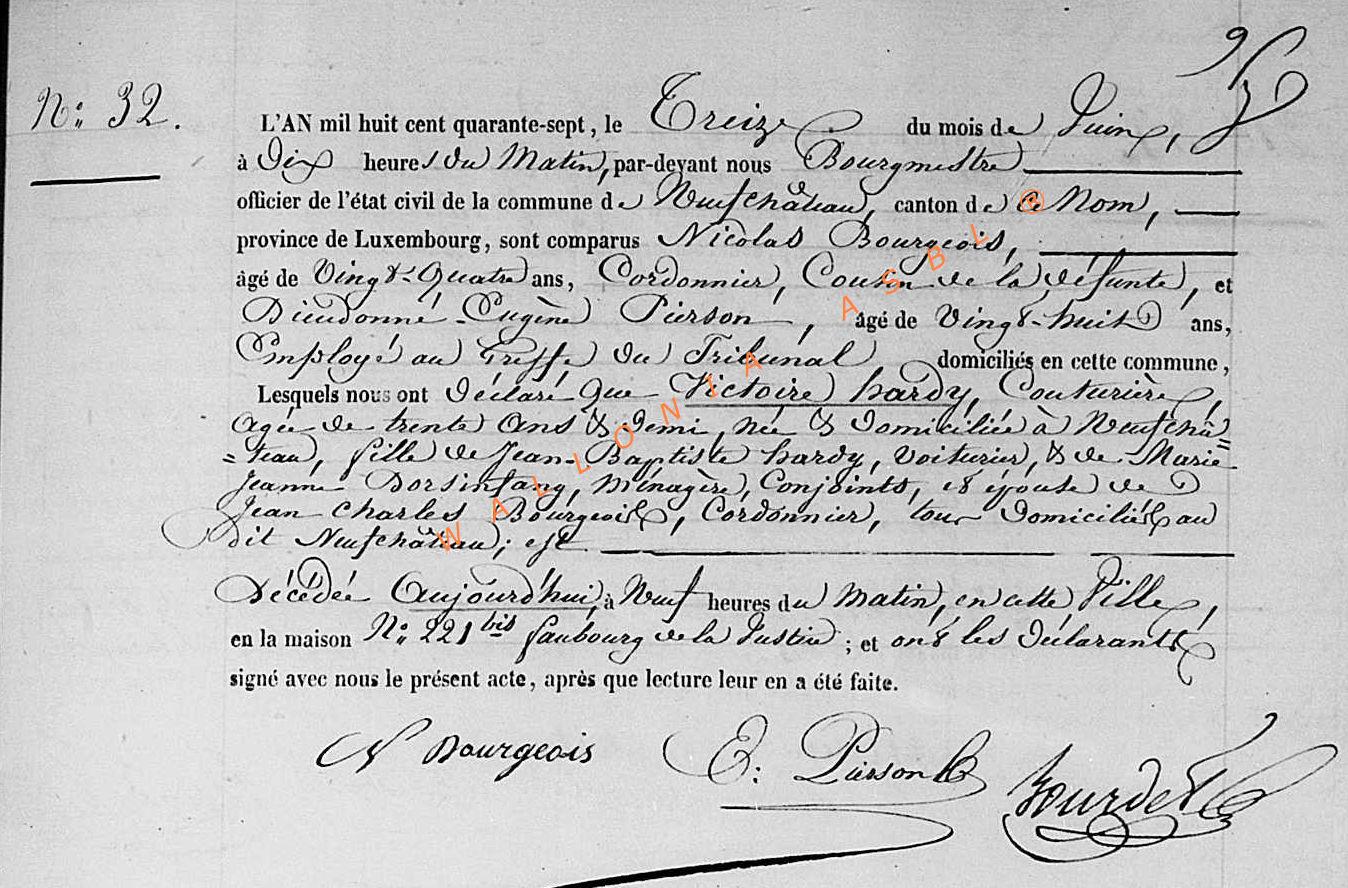 N° 32.
L'AN mil huit cent quarante-sept, le Treize du mois de Juin,
à Dix heures du Matin, par-devant nous Bourgmestre
officier de l'état civil de la commune de Neufchâteau, canton de ce Nom,
province de Luxembourg, sont comparus Nicolas Bourgeois,
âgé de Vingt-Quatre ans, Cordonnier, Cousin de la défunte, et
Dieudonné-Eugène Pierson, âgé de Vingt-huit ans,
Employé au Greffe du Tribunal domiciliés en cette commune,
Lesquels nous ont Déclaré que Victoire hardy, Couturière,
Agée de trente ans & demi, née & domiciliée à Neufchâ=
=teau, fille de Jean-Baptiste hardy, Voiturier, & de Marie
Jeanne Dorsinfang, Ménagère, Conjoints, et épouse de
Jean Charles Bourgeois, Cordonnier, tous Domiciliés au
dit Neufchâteau; est
Décédée Aujourd'hui, à Neuf heures du Matin, en cette Ville,
en la maison N° 221 bis faubourg de la Justice; et ont les déclarants
signé avec nous le présent acte, après que lecture leur en a été faite.
N Bourgeois E: Pierson Bourdet
WALLONIA ASBL ®